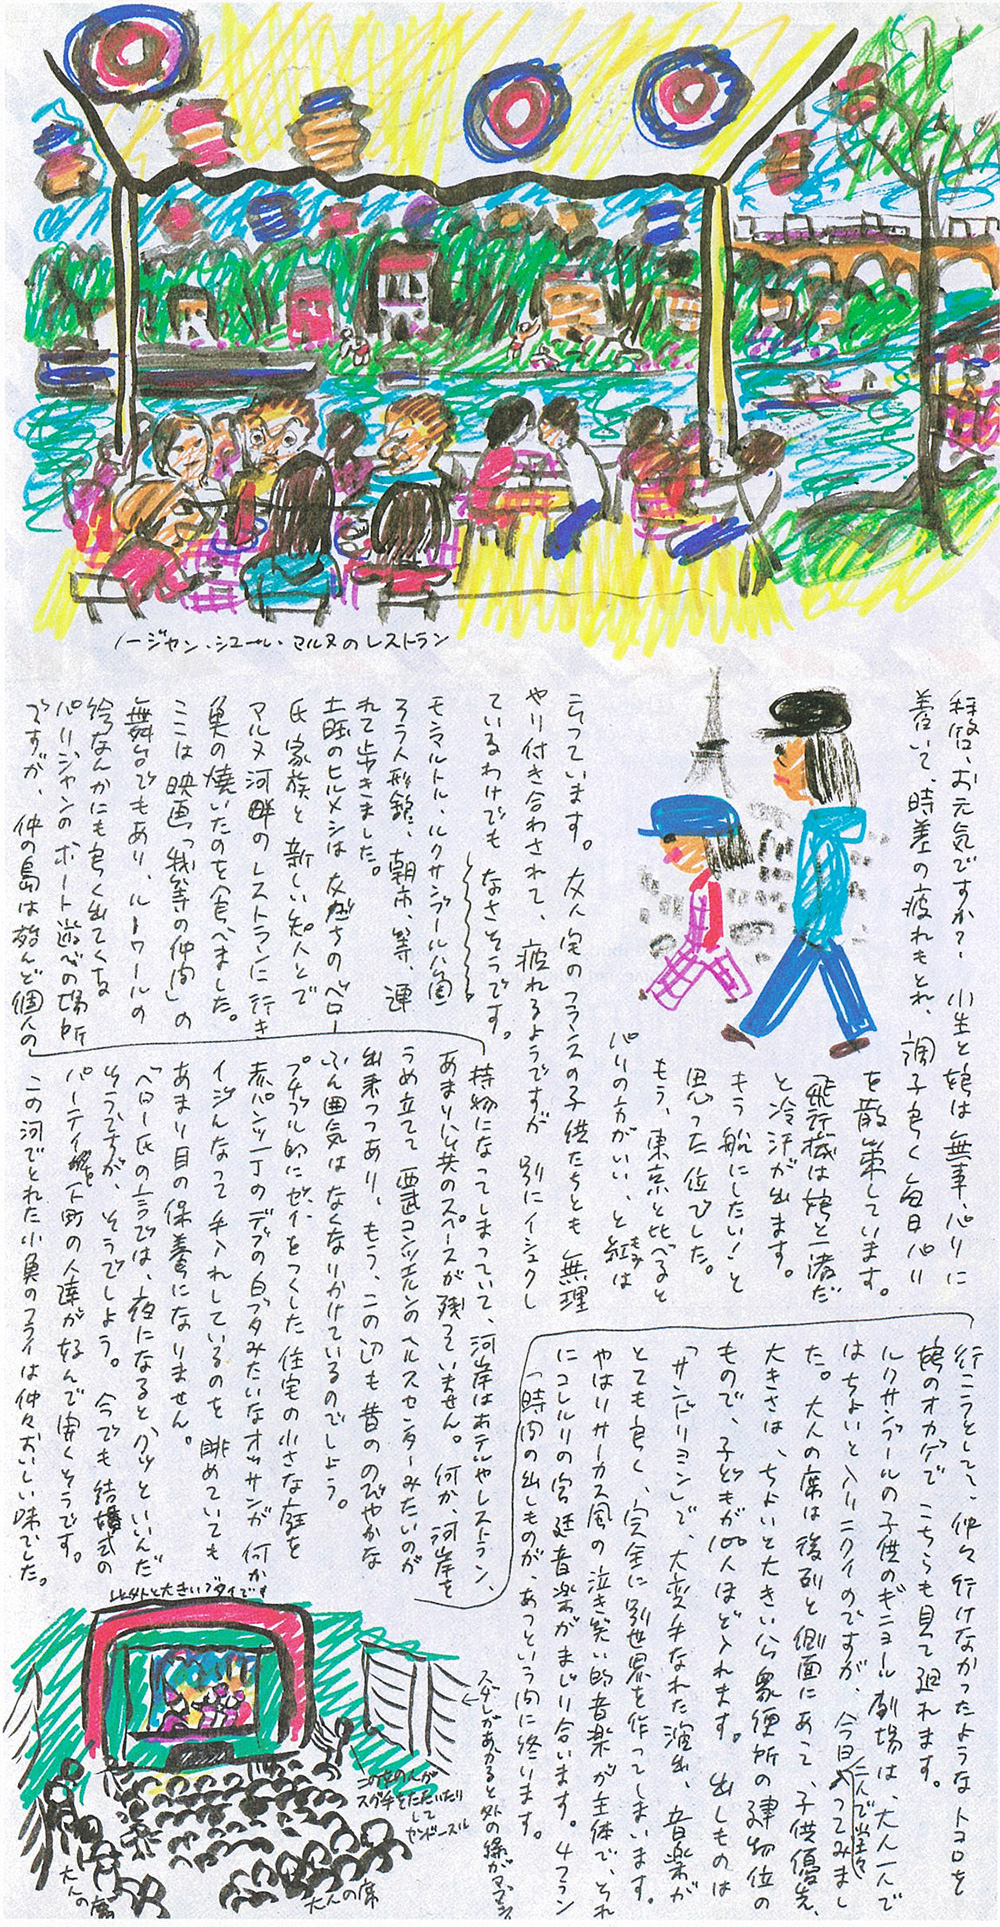 ノージャン・シュール・マルヌのレストラン
拝啓、お元気ですか？ 小生と娘は無事、パリに
着いて、時差の疲れもとれ、調子良く毎日パリ
を散策しています。
「飛行機は娘と一諸だ
と冷汗が出ます。
もう船にしたい！と
思った位でした。
もう、東京と比べると
パリの方がいい、と娘は
云っています。友人宅のフランスの子供たちとも無理
やり付き合わされて、疲れるようですが 別にイシュクし
ているわけでも なさそうです。
モンマルトル、ルクサンブール公園
ろう人形館、朝市、等、連
れて歩きました。
土曜のヒルメシは友だちのベロー
氏家族と新しい知人とで
マルヌ河畔のレストランに行き
魚の焼いたのを食べました。
ここは映画「我等の仲間」の
舞台でもあり ルノワールの
絵なんかにも良く出てくる
パリジャンのボート遊びの場所
ですが、仲の島は殆んど個人の
持物になってしまっていて、河岸はホテルやレストラン、
あまり公共のスペースが残っていません。何か、河岸を
うめ立てて西武コンツェルンのヘルスセンターみたいのが
出来つつあり、もう、この辺も昔ののびやかな
ふん囲気はなくなりかけているのでしょう。
プチブル的にぜいをつくした住宅の小さな庭を
赤パンツ一丁のデブの白ブタみたいなオッサンが 何か
イジんなって手入れしているのを 眺めていても
あまり目の保養になりません。
ベロー氏の言では、夜になると、グッといいんだ
そうですが、そうでしょう。今でも結婚式の
パーティを下町の人達が好んで開くそうです。
この河でとれた小魚のフライは仲々おいしい味でした。
行こうとしてて、仲々行けなかったような トコロを
娘のオカゲで こちらも見て廻れます。
ルクサンブールの子供のギニョール劇場は、大人一人で
はちょいと入りニクイのですが、今日二人で堂々入ってみまし
た。大人の席は後列と側面にあって、子供優先、
大きさは、ちょいと大きい公衆便所の建物位の
もので、子どもが100人ほど入れます。出しものは
「サンドリヨン」で、大変手なれた演出、音楽が
とても良く、完全に別世界を作ってしまいます。
やはりサーカス風の泣き笑い的音楽が主体で、それ
にコレルリの宮廷音楽がまじり合います。4フラン
「時間の出しものが、あっという間に終ります。
以外と大きいブタイです
スダレがあがると外の緑がマブシイ
この女の人が
スグ手をたたいたり
して
センドースル
大人の席
大人の席